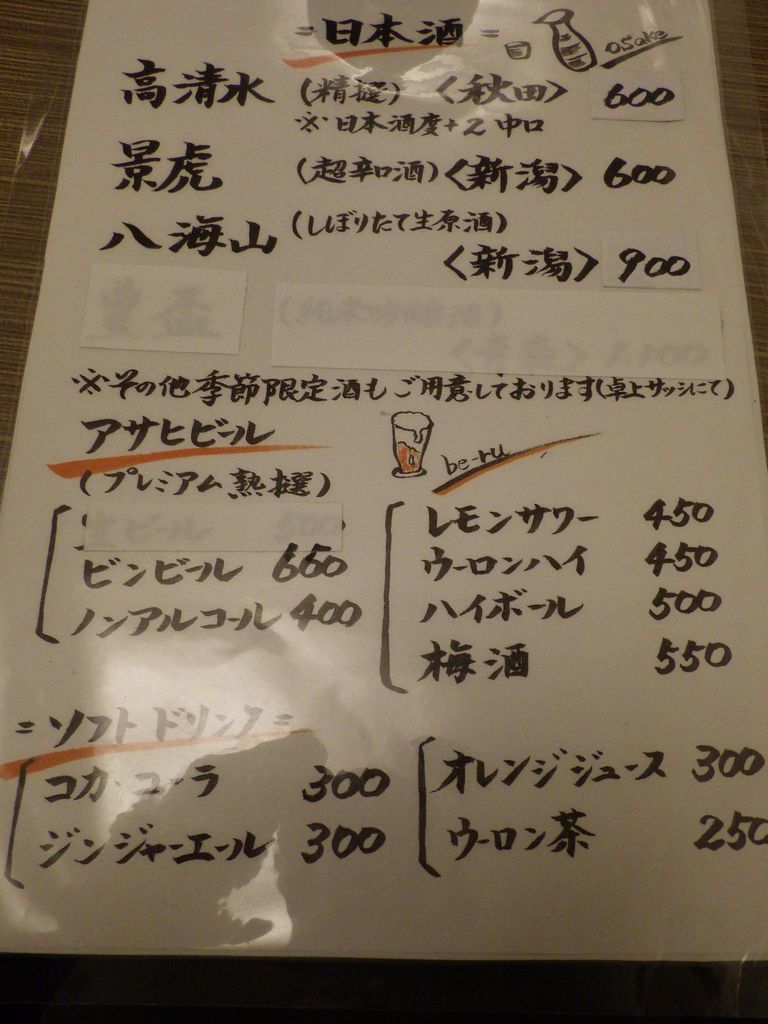 =日本酒= osake
高清水 (精撰) 〈秋田〉 600
※日本酒度+2 中口
景虎 (超辛口酒) 〈新潟〉 600
八海山 (しぼりたて生原酒)
〈新潟〉 900
豊盃 (純米吟醸酒)
※その他季節限定酒もご用意しております(卓上サッシにて)
アサヒビール be-ru
(プレミアム熟撰)
生ビール 500
ビンビール 660
ノンアルコール 400
レモンサワー 450
ウーロンハイ 450
ハイボール 500
梅酒 550
=ソフトドリンク=
コカ・コーラ 300
ジンジャーエール 300
オレンジジュース 300
ウーロン茶 250